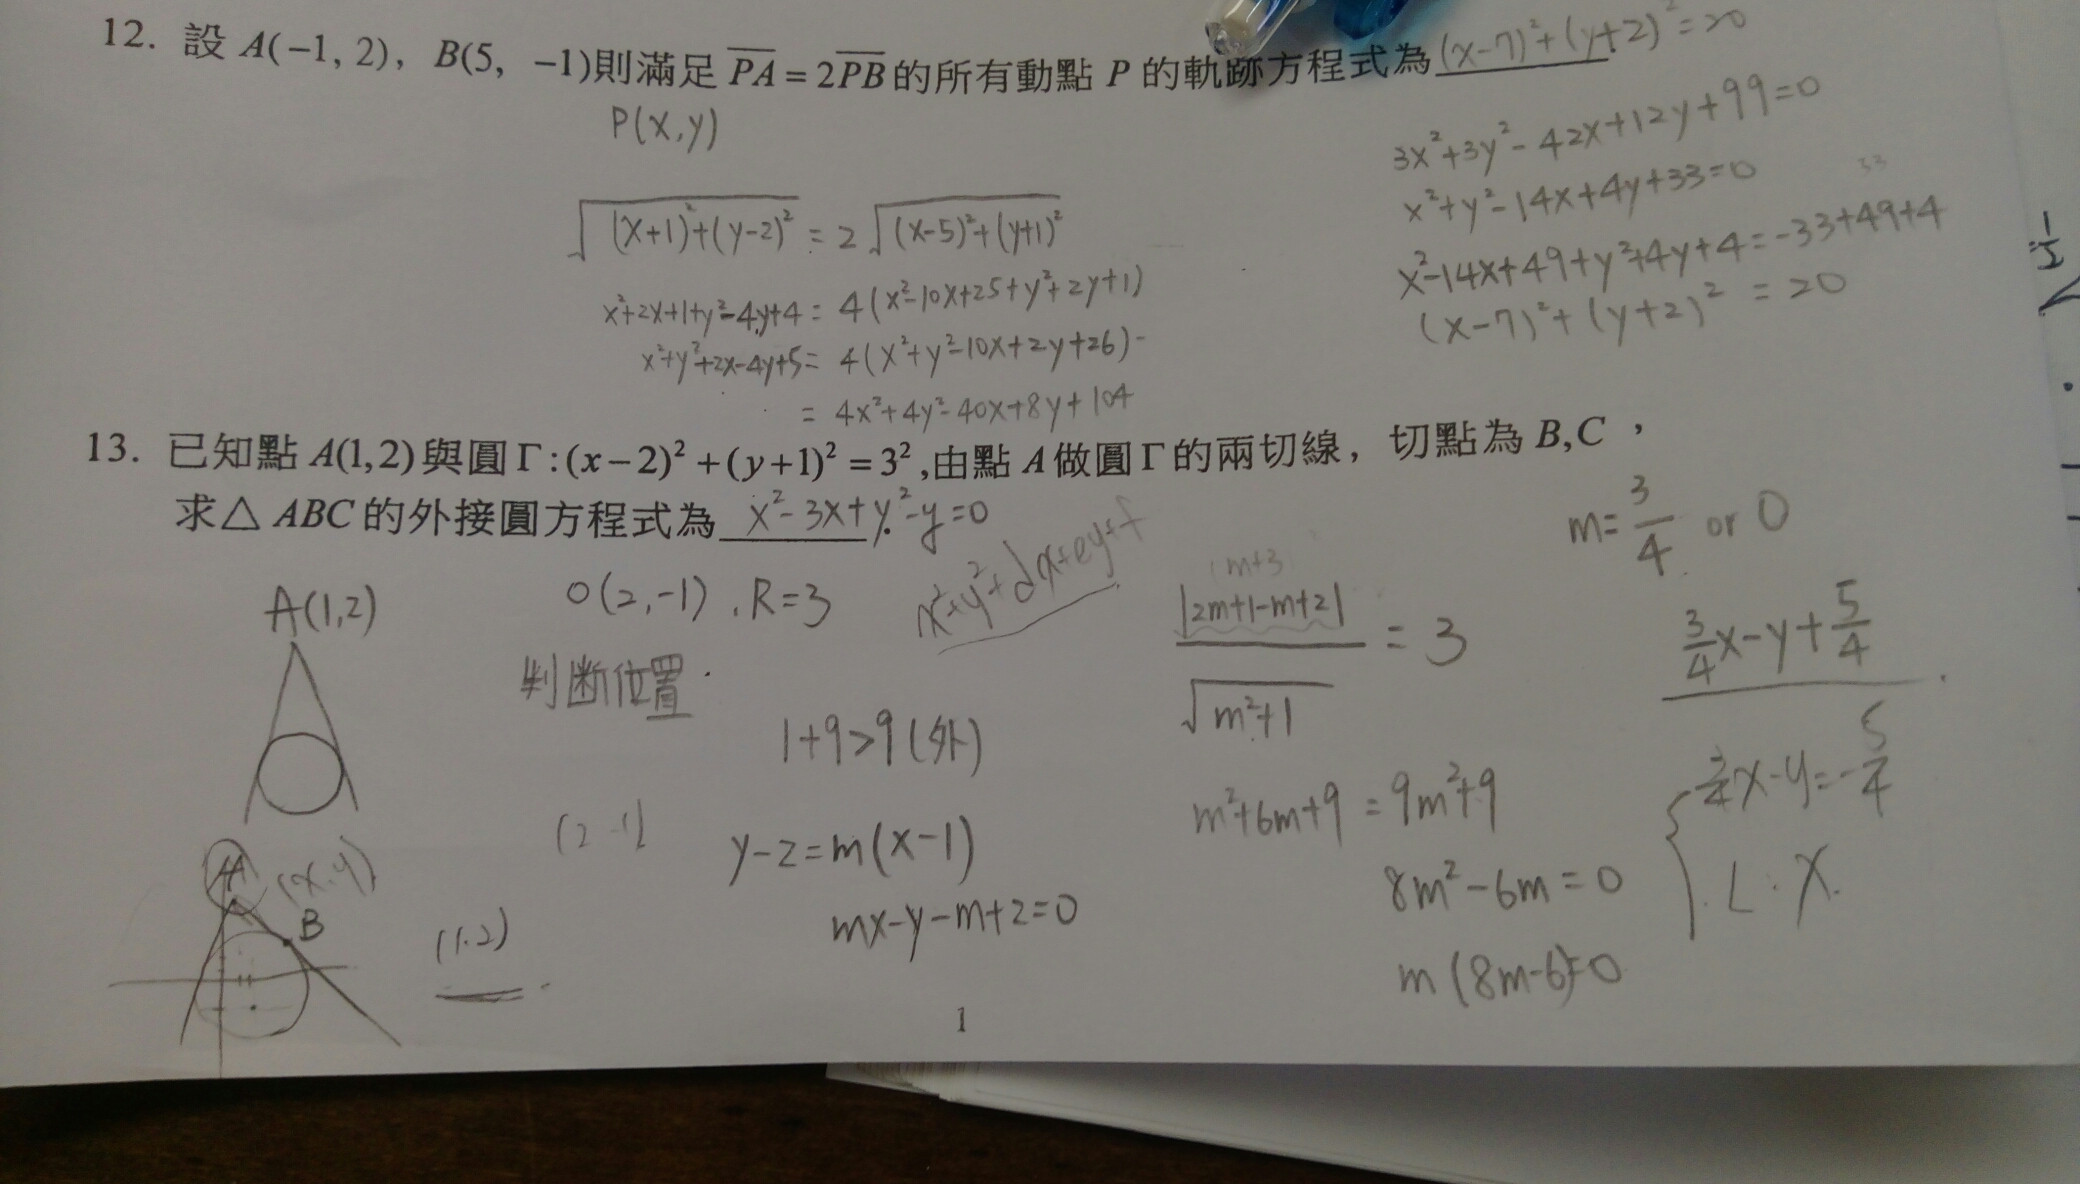 12. 設 A(−1, 2), B(5, −1)則滿足 PA = 2PB 的所有動點 P 的軌跡方程式為 (x-7)²+(y+2)²=20
P(x,y)
√(x+1)²+(y-2)² = 2√(x-5)²+(y+1)²
x²+2x+1+y²-4y+4 = 4(x²-10x+25+y²+2y+1)
x²+y²+2x-4y+5 = 4(x²+y²-10x+2y+26)
= 4x²+4y²-40x+8y+104
3x²+3y²-42x+12y+99=0
x²+y²-14x+4y+33=0
33
x²-14x+49+y²+4y+4=-33+49+4
(x-7)²+(y+2)²=20
13. 已知點 A(1,2)與圓Γ:(x−2)²+(y+1)²=3²,由點 A 做圓Γ的兩切線，切點為 B,C，
求△ ABC 的外接圓方程式為 x²-3x+y²-y=0
A(1,2)
O(2,-1), R=3
x²+y²+dx+ey+f
判斷位置
1+9>9(外)
(2 -1)
y-2=m(x-1)
mx-y-m+2=0
A (x,y)
B
(1.2)
m+3
|2m+1-m+2| / √m²+1 = 3
m²+6m+9=9m²+9
8m²-6m=0
m(8m-6)=0
m=3/4 or 0
3/4x-y+5/4
3/4x-y=-5/4
L: x
1